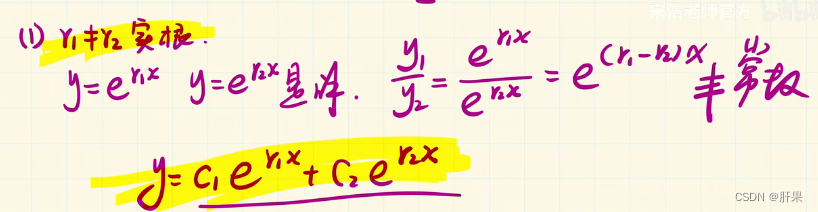 宋浩老师官方
(1) r₁≠r₂ 实根.
y=e^{r₁x} y=e^{r₂x}是解. y₁/y₂ = e^{r₁x}/e^{r₂x} = e^{(r₁-r₂)x} ≠ 常数
y=C₁e^{r₁x}+C₂e^{r₂x}
CSDN @肝果